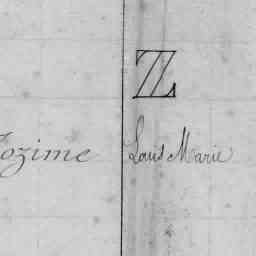 Z
Zozime Louis Marie